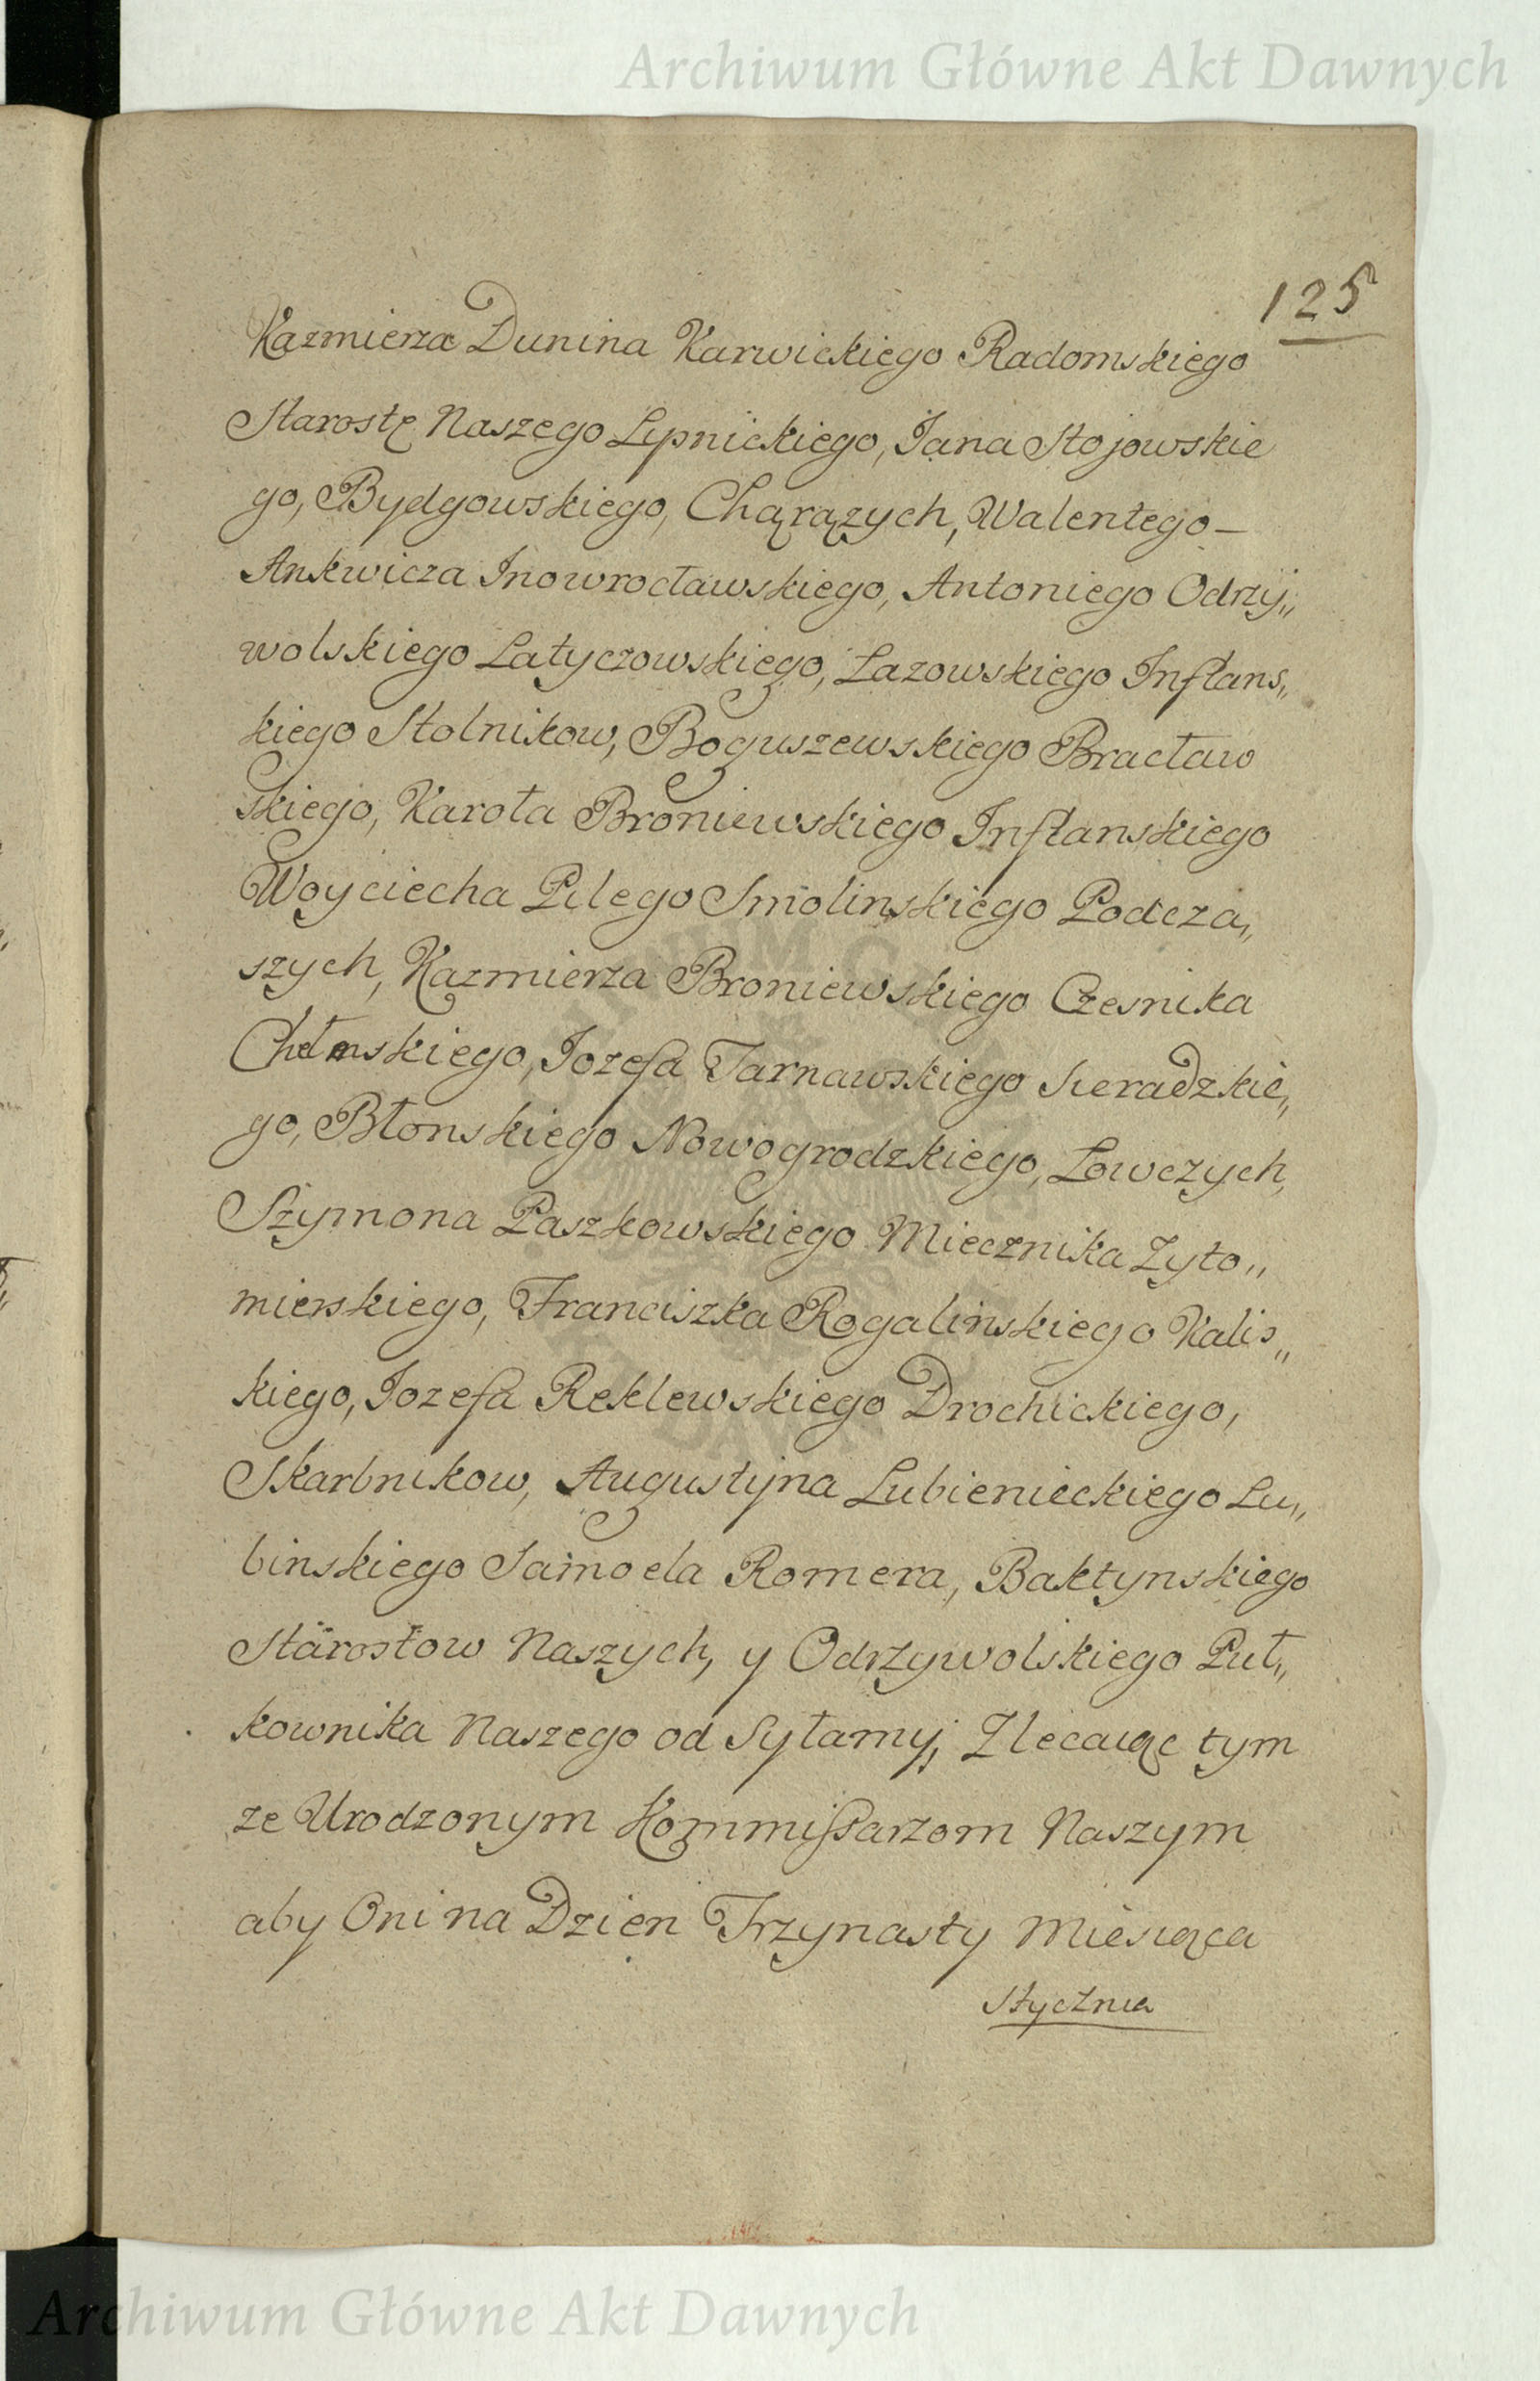 Archiwum Główne Akt Dawnych
125
Kazmierza Dunina Karwickiego Radomskiego
Starostę Naszego Lipnickiego, Jana Stojowskie
go, Bydgowskiego, Chąrązych, Walentego –
Ankwicza Inowrocławskiego, Antoniego Odrzy„
wolskiego Latyczowskiego, Lazowskiego Inflans„
kiego Stolnikow, Boguszewskiego Bracław
skiego, Karola Broniewskiego Inflanskiego
Woyciecha Pilego Smolinskiego Podcza„
szych, Kazmierza Broniewskiego Czesnika
Chełmskiego, Jozefa Tarnawskiego Sieradzkie„
go, Błonskiego Nowogrodzkiego, Lowczych,
Szymona Paszkowskiego Miecznika Zyto„
mierskiego, Franciszka Rogalinskiego Kalis„
kiego, Jozefa Reklewskiego Drochickiego,
Skarbnikow, Augustyna Lubienieckiego Lu„
binskiego Samoela Romera, Baktynskiego
Starostow Naszych, y Odrzywolskiego Puł„
kownika Naszego od Syłamy, Zlecaiąc tym
ze Urodzonym Kommissarzom Naszym
aby Oni na Dzien Trzynasty Miesiąca
Stycznia
Archiwum Główne Akt Dawnych